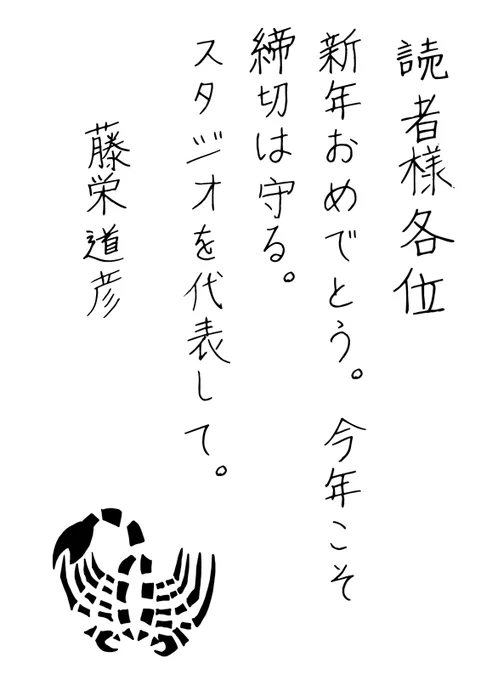 読者様各位
新年おめでとう。今年こそ
締切は守る。
スタジオを代表して。
藤栄道彦